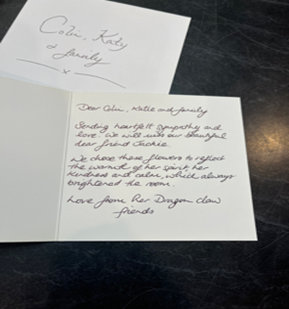 Colin, Katy
& family
x
Dear Colin, Katie and family
Sending heartfelt sympathy and
love. We will miss our beautiful
dear friend Jackie.
We chose these flowers to reflect
the warmth of her spirit, her
kindness and calm, which always
brightened the room.
Love from her Dragon claw
friends